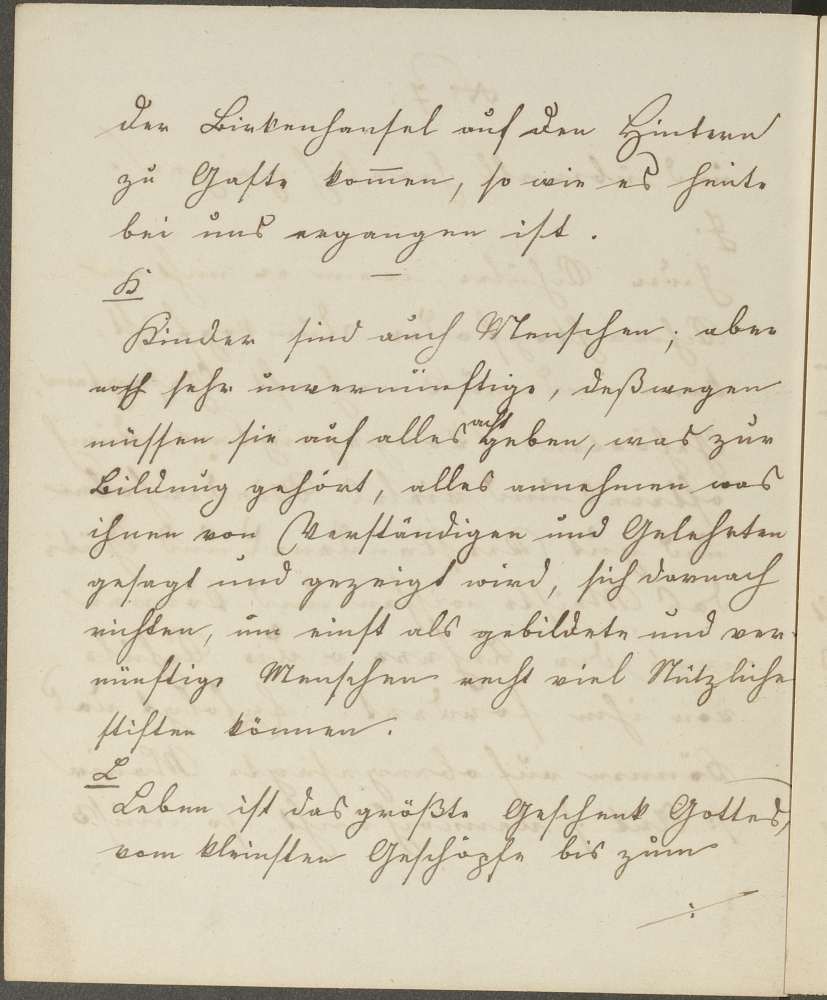 der Birkenhansel auf den Hintern
zu Gaste kom̅en, so wie es heute
bei uns ergangen ist.
K
Kinder sind auch Menschen; aber
noch sehr unvernünftige, deßwegen
müssen sie auf alles acht geben, was zur
Bildung gehört, alles annehmen was
ihnen von Verständigen und Gelehrten
gesagt und gezeigt wird, sich darnach
richten, um einst als gebildete und ver-
nünftige Menschen recht viel Nützliche
stiften können.
L
Leben ist das größte Geschenk Gottes,
vom kleinsten Geschöpfe bis zum
./.